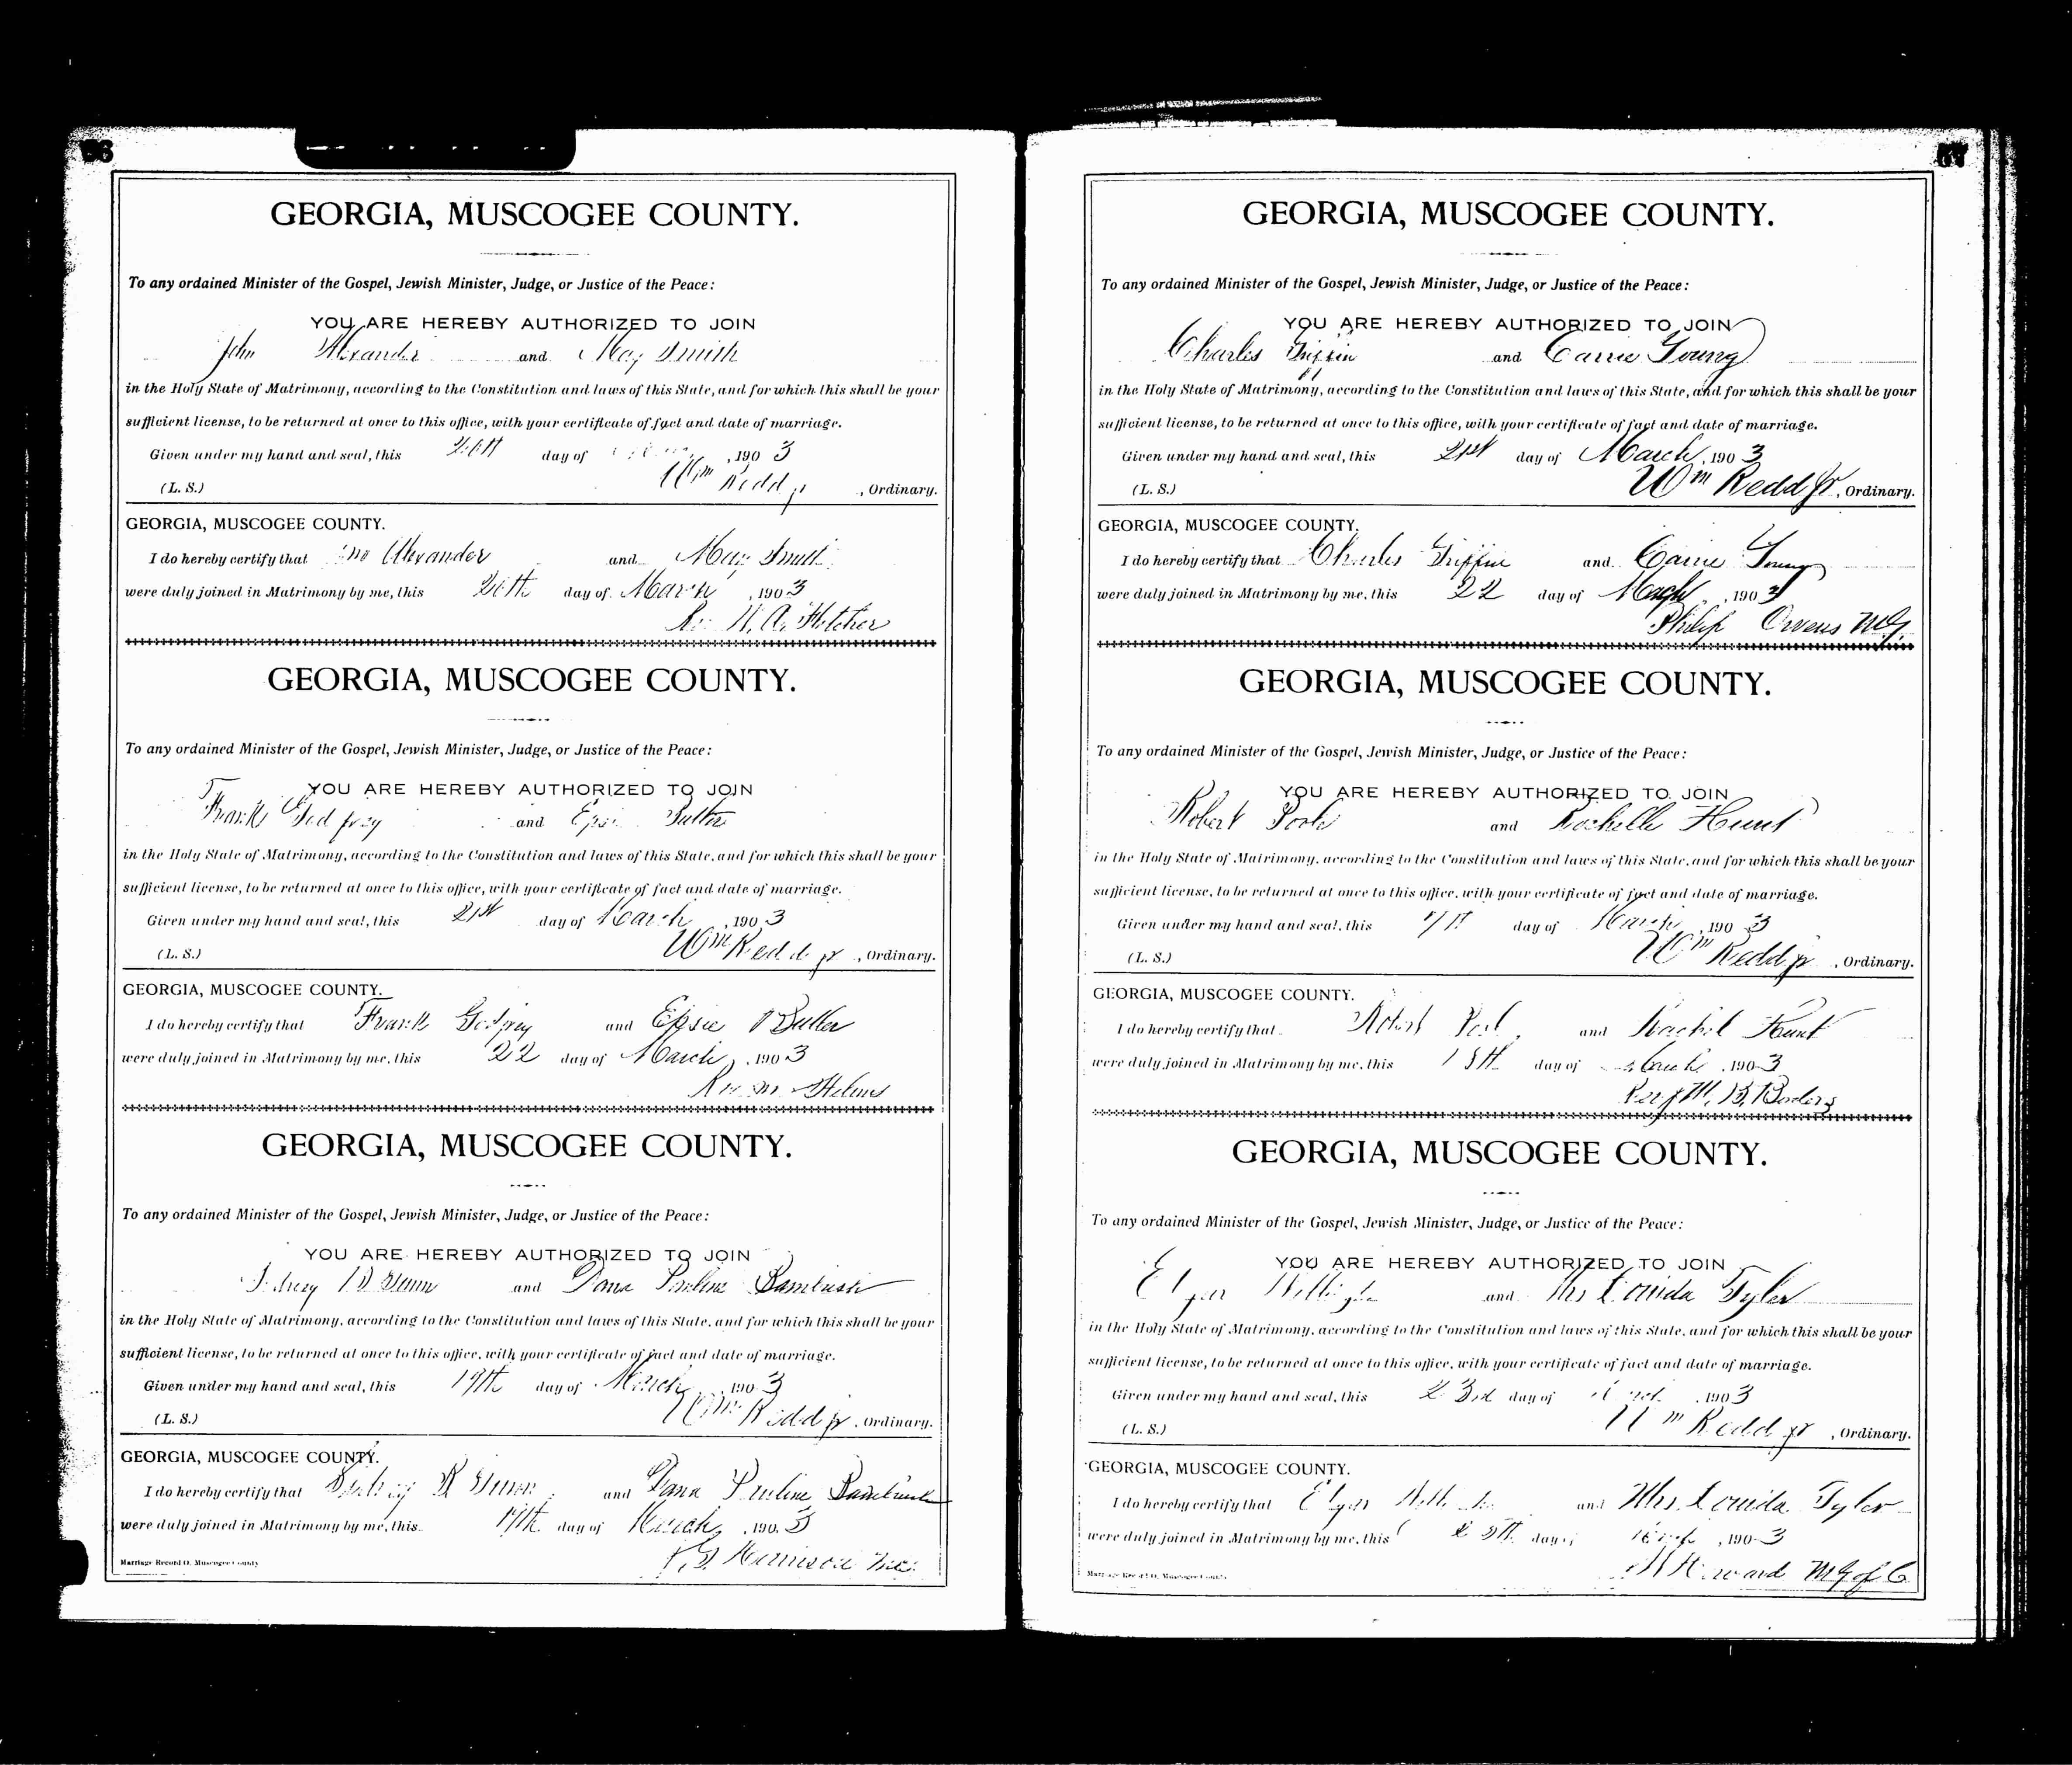 GEORGIA, MUSCOGEE COUNTY.
To any ordained Minister of the Gospel, Jewish Minister, Judge, or Justice of the Peace:
YOU ARE HEREBY AUTHORIZED TO JOIN
John Alexander and May Smith
in the Holy State of Matrimony, according to the Constitution and laws of this State, and for which this shall be your
sufficient license, to be returned at once to this office, with your certificate of fact and date of marriage.
Given under my hand and seal, this 20th day of , 1903
(L. S.) Wm Redd jr , Ordinary.
GEORGIA, MUSCOGEE COUNTY.
I do hereby certify that Jno Alexander and May Smith
were duly joined in Matrimony by me, this 20th day of March , 1903
W. A. Fletcher
GEORGIA, MUSCOGEE COUNTY.
To any ordained Minister of the Gospel, Jewish Minister, Judge, or Justice of the Peace:
YOU ARE HEREBY AUTHORIZED TO JOIN
Frank Godfrey and Epsie Butler
in the Holy State of Matrimony, according to the Constitution and laws of this State, and for which this shall be your
sufficient license, to be returned at once to this office, with your certificate of fact and date of marriage.
Given under my hand and seal, this 21st day of March , 1903
(L. S.) Wm Redd jr , Ordinary.
GEORGIA, MUSCOGEE COUNTY.
I do hereby certify that Frank Godfrey and Epsie Butler
were duly joined in Matrimony by me, this 22 day of March , 1903
Helms
GEORGIA, MUSCOGEE COUNTY.
To any ordained Minister of the Gospel, Jewish Minister, Judge, or Justice of the Peace:
YOU ARE HEREBY AUTHORIZED TO JOIN
and Dana Pauline
in the Holy State of Matrimony, according to the Constitution and laws of this State, and for which this shall be your
sufficient license, to be returned at once to this office, with your certificate of fact and date of marriage.
Given under my hand and seal, this 17th day of March , 1903
(L. S.) Wm Redd jr , Ordinary.
GEORGIA, MUSCOGEE COUNTY.
I do hereby certify that and Dana Pauline
were duly joined in Matrimony by me, this 17th day of March , 1903
Harrison
Marriage Record O. Muscogee County
57
GEORGIA, MUSCOGEE COUNTY.
To any ordained Minister of the Gospel, Jewish Minister, Judge, or Justice of the Peace:
YOU ARE HEREBY AUTHORIZED TO JOIN
Charles Griffin and Carrie Young
in the Holy State of Matrimony, according to the Constitution and laws of this State, and for which this shall be your
sufficient license, to be returned at once to this office, with your certificate of fact and date of marriage.
Given under my hand and seal, this 21st day of March , 1903
(L. S.) Wm Redd Jr , Ordinary.
GEORGIA, MUSCOGEE COUNTY.
I do hereby certify that Charles Griffin and Carrie Young
were duly joined in Matrimony by me, this 22 day of March , 1903
Philip Owens M.G.
GEORGIA, MUSCOGEE COUNTY.
To any ordained Minister of the Gospel, Jewish Minister, Judge, or Justice of the Peace:
YOU ARE HEREBY AUTHORIZED TO JOIN
Robert and Rachelle Hunt
in the Holy State of Matrimony, according to the Constitution and laws of this State, and for which this shall be your
sufficient license, to be returned at once to this office, with your certificate of fact and date of marriage.
Given under my hand and seal, this day of March , 1903
(L. S.) Wm Redd jr , Ordinary.
GEORGIA, MUSCOGEE COUNTY.
I do hereby certify that Robert and Rachel Hunt
were duly joined in Matrimony by me, this day of March , 1903
B. Borders
GEORGIA, MUSCOGEE COUNTY.
To any ordained Minister of the Gospel, Jewish Minister, Judge, or Justice of the Peace:
YOU ARE HEREBY AUTHORIZED TO JOIN
and Mrs Louida Tyler
in the Holy State of Matrimony, according to the Constitution and laws of this State, and for which this shall be your
sufficient license, to be returned at once to this office, with your certificate of fact and date of marriage.
Given under my hand and seal, this 23rd day of , 1903
(L. S.) Wm Redd jr , Ordinary.
GEORGIA, MUSCOGEE COUNTY.
I do hereby certify that and Mrs. Louida Tyler
were duly joined in Matrimony by me, this day of , 1903
Howard M G of C
Marriage Record O. Muscogee County